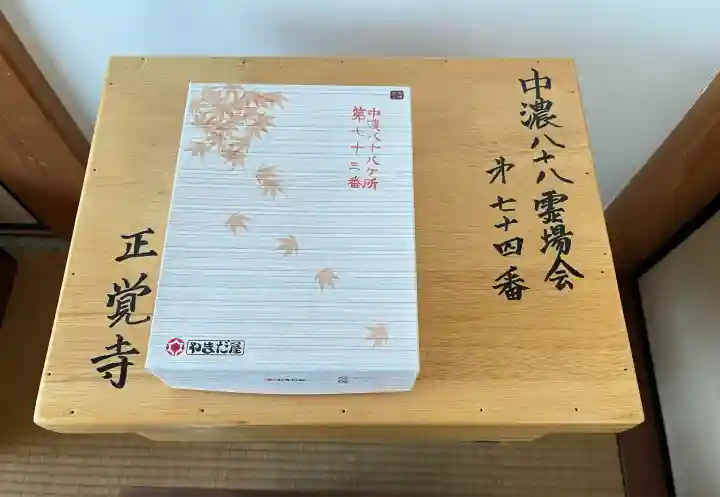 中濃八十八霊場会
第七十四番
中濃八十八ヶ所
第七十三番
やまだ屋
正覚寺